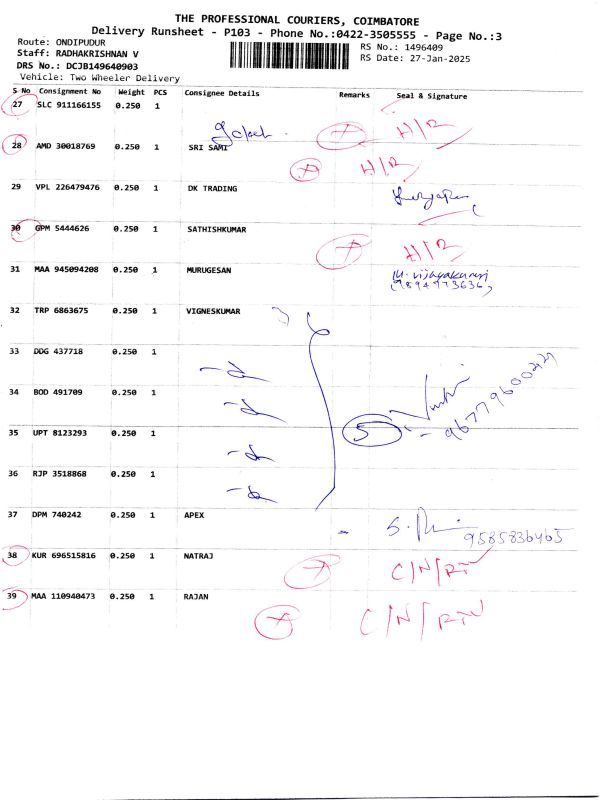 THE PROFESSIONAL COURIERS, COIMBATORE
Delivery Runsheet - P103 - Phone No.:0422-3505555 - Page No.:3
Route: ONDIPUDUR
RS No.: 1496409
Staff: RADHAKRISHNAN V
RS Date: 27-Jan-2025
DRS No.: DCJB149640903
Vehicle: Two Wheeler Delivery
S No Consignment No Weight PCS Consignee Details Remarks Seal & Signature
27 SLC 911166155 0.250 1
H/R
28 AMD 30018769 0.250 1 SRI SAMI
H/R
29 VPL 226479476 0.250 1 DK TRADING
30 GPM 5444626 0.250 1 SATHISHKUMAR
H/R
31 MAA 945094208 0.250 1 MURUGESAN
(9894973636)
32 TRP 6863675 0.250 1 VIGNESKUMAR
33 DDG 437718 0.250 1
34 BOD 491709 0.250 1
35 UPT 8123293 0.250 1 5
36 RJP 3518868 0.250 1
37 DPM 740242 0.250 1 APEX
9585836465
38 KUR 696515816 0.250 1 NATRAJ
C/N/RTN
39 MAA 110940473 0.250 1 RAJAN
C/N/RTN